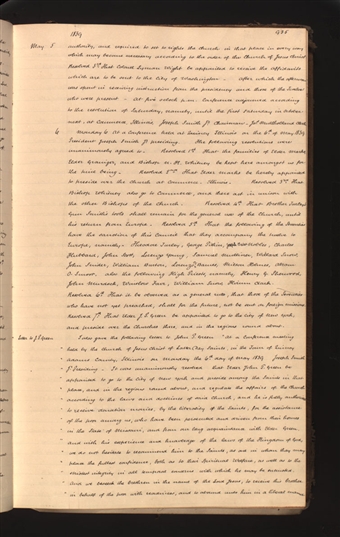 1839
May 5
authority, and required to set to rights the church in that place in every way
which may become necessary according to the order of the Church of Jesus Christ
Resolved 3rd That Colonel Lyman Wight be appointed to receive the affidavits
which are to be sent to the City of Washington. After which the afternoon
was spent in receiving instruction from the presidency and those of the twelve
who were present. At five o'clock p.m. Conference adjourned according
to the resolution of Saturday, namely, until the first Saturday in October
next, at Commerce, Illinois. Joseph Smith Jr Chairman.
6 Monday 6 At a Conference held at Quincy Illinois on the 6th of May 1839
President Joseph Smith Jr presiding. The following resolutions were
unanimously agreed to. Resolved 1st That the families of Elder Marks
Elder Granger, and Bishop N. K. Whitney be kept here amongst us for
the time being. Resolved 2nd That Elder Marks be hereby appointed
to preside over the church at Commerce, Illinois. Resolved 3rd That
Bishop Whitney also go to Commerce, and there act in unison with
the other Bishops of the Church. Resolved 4th That Brother Turley's
Gun Smith's tools shall remain for the general use of the Church, until
his return from Europe. Resolved 5th That the following of the Seventies
have the sanction of this Council that they accompany the twelve to
Europe, namely: Theodore Turley, George Pitkin, Charles
Hubbard, John Scott, Lorenzo Young, Samuel
John Snider, William Burton, Lorenzo
also the following High Priests, namely Henry G. Sherwood,
John Murdock, Winslow Farr, William Snow, Hiram Clark.
Resolved 6th That it be observed as a general rule, that those of the Seventies
who have not yet preached, shall for the future, not be sent on foreign missions
Resolved 7th That Elder J. P. Green be appointed to go to the City of New York,
and preside over the Churches there, and in the regions round about.
Letter to J P Green I also gave the following letter to John P. Green "At a Conference meeting
held by the Church of Jesus Christ of Latter Day Saints, in the town of Quincy
Adams County Illinois on Monday the 6th day of May 1839 Joseph Smith
Jr Presiding. It was unanimously resolved that Elder John P. Green be
appointed to go to the City of New York and preside among the saints in that
place, and in the regions round about, and regulate the affairs of the Church
according to the laws and doctrines of said church, and he is fully authorized
to receive donation monies, by the liberality of the Saints, for the assistance
of the poor among us, who have been persecuted and driven from their homes
in the State of Missouri, and from our long acquaintance with Elder Green
and with his experience and knowledge of the laws of the Kingdom of God,
we do not hesitate to recommend him to the Saints, as one in whom they may
place the fullest confidence, both as to their Spiritual Welfare, as well as to the
strictest integrity in all temporal concerns with which he may be entrusted
And we beseech the brethren in the name of the Lord Jesus, to receive this brother
in behalf of the poor with readiness, and to abound unto him in a liberal manner